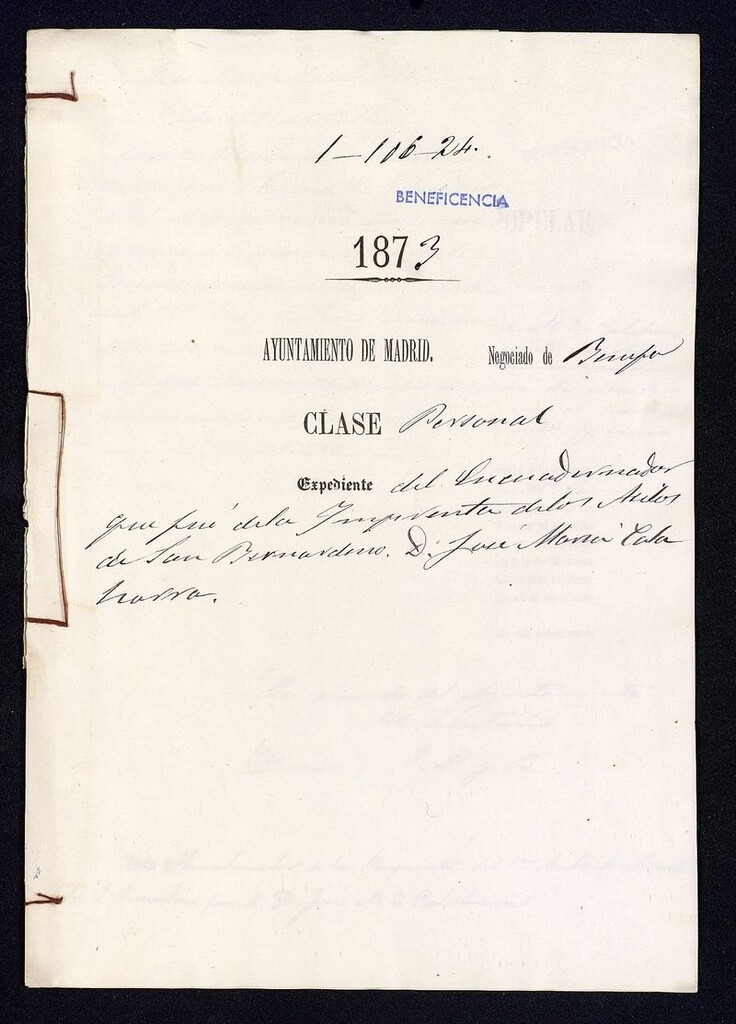 1-106-24.
BENEFICENCIA
1873
AYUNTAMIENTO DE MADRID. Negociado de
CLASE Personal
Expediente del Encuadernador
que fué de la Imprenta de los Asilos
de San Bernardino. D. José Maria Cala
horra.